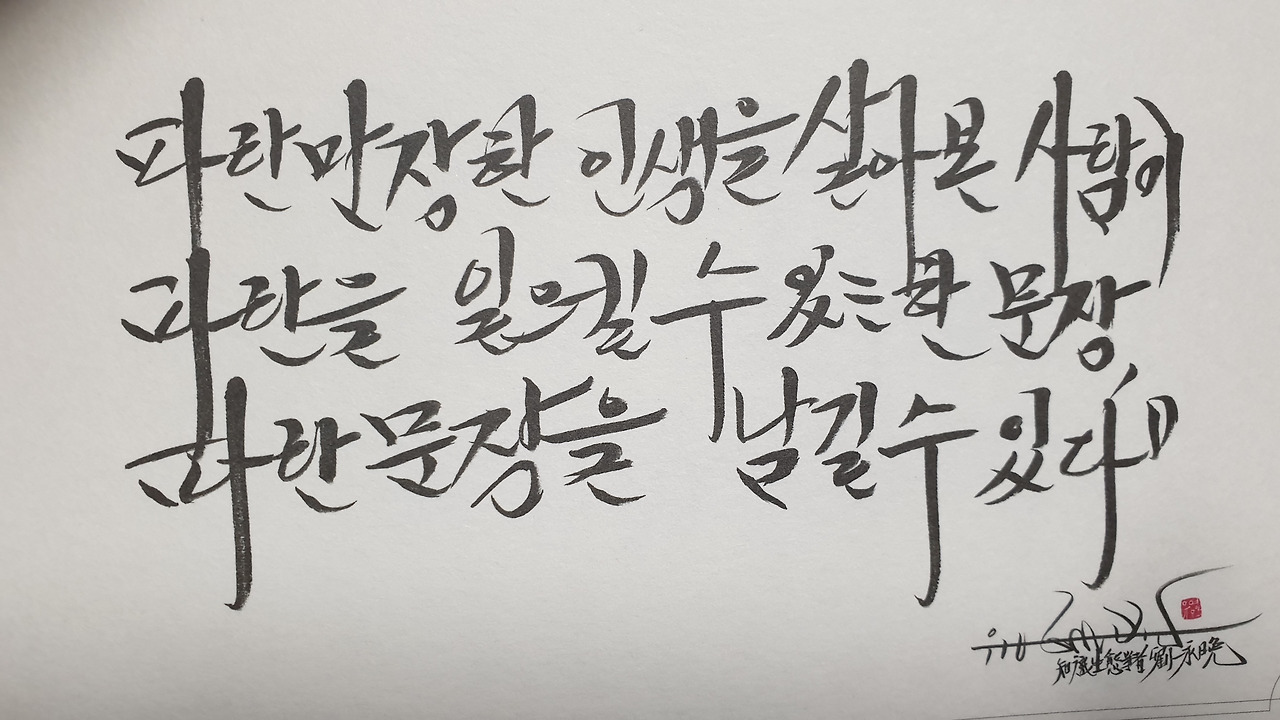 파란만장한 인생을 살아본 사람이
파란을 일으킬 수 있는 한 문장
파란 문장을 남길 수 있다"
知識生態學者 劉永晩